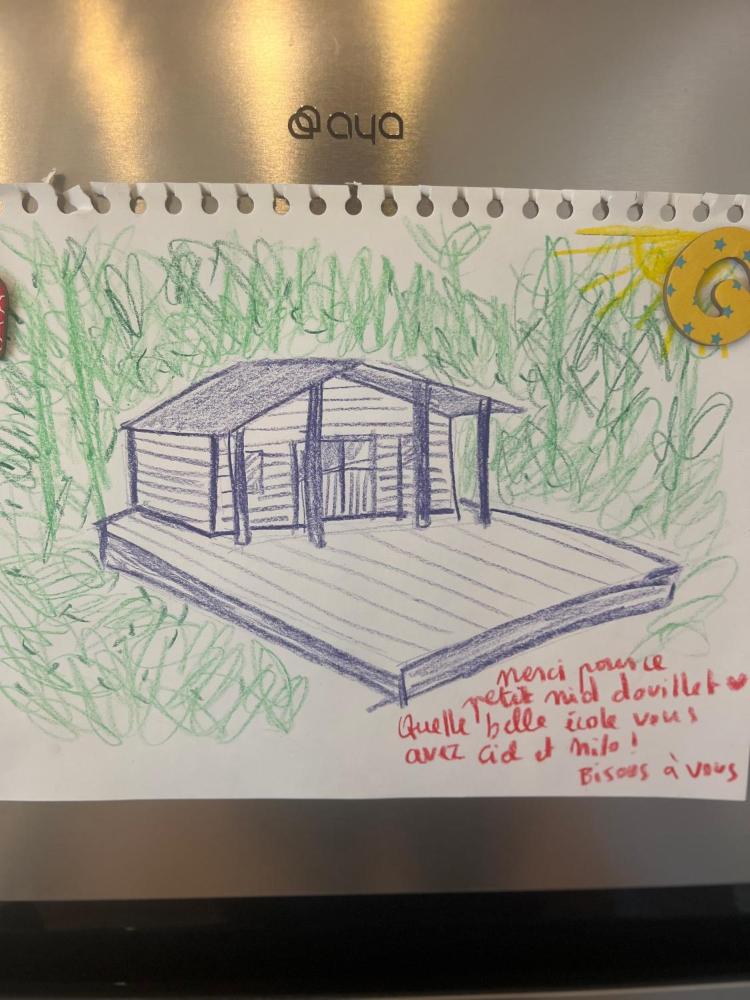 aya
merci pour ce
petit nid douillet
Quelle belle école vous
avez Cid et Milo !
Bisous à vous